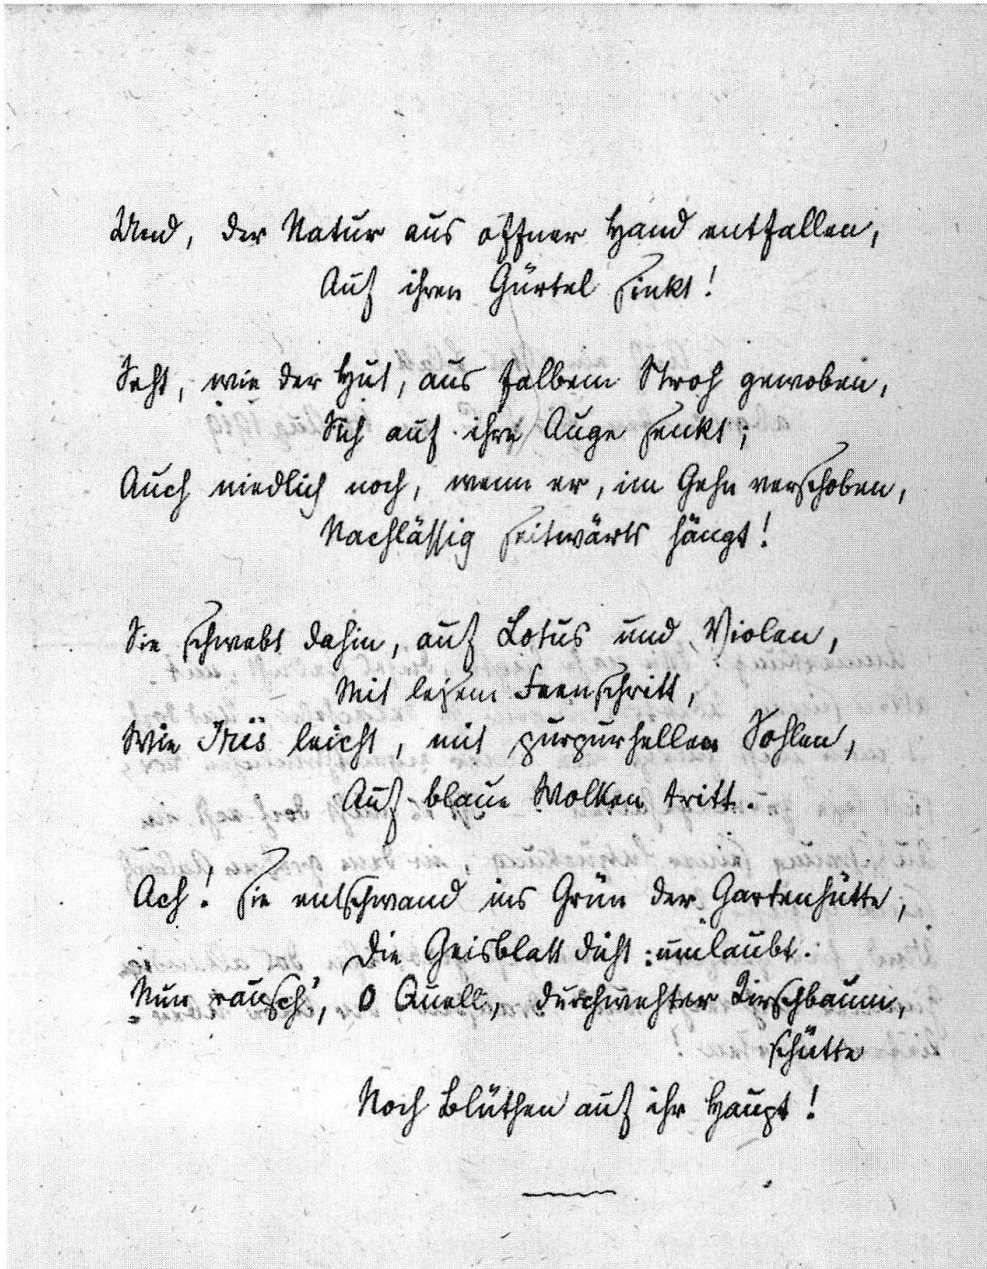 Und, der Natur aus offner Hand entfallen,
Auf ihren Gürtel sinkt!
Seht, wie der Hut, aus falbem Stroh gewoben,
Sich auf ihre Auge senkt;
Auch niedlich noch, wenn er, im Gehn verschoben,
Nachlässig seitwärts hängt!
Sie schwebt dahin, auf Lotus und Violen,
Mit leisem Feenschritt,
Wie Iris leicht, mit purpurhellen Sohlen,
Auf blaue Wolken tritt.
Ach! sie entschwand ins Grün der Gartenhütte,
Die Geisblatt dicht umlaubt.
Nun rausch', o Quell, durchwehter Kirschbaum,
schütte
Noch Blüthen auf ihr Haupt!